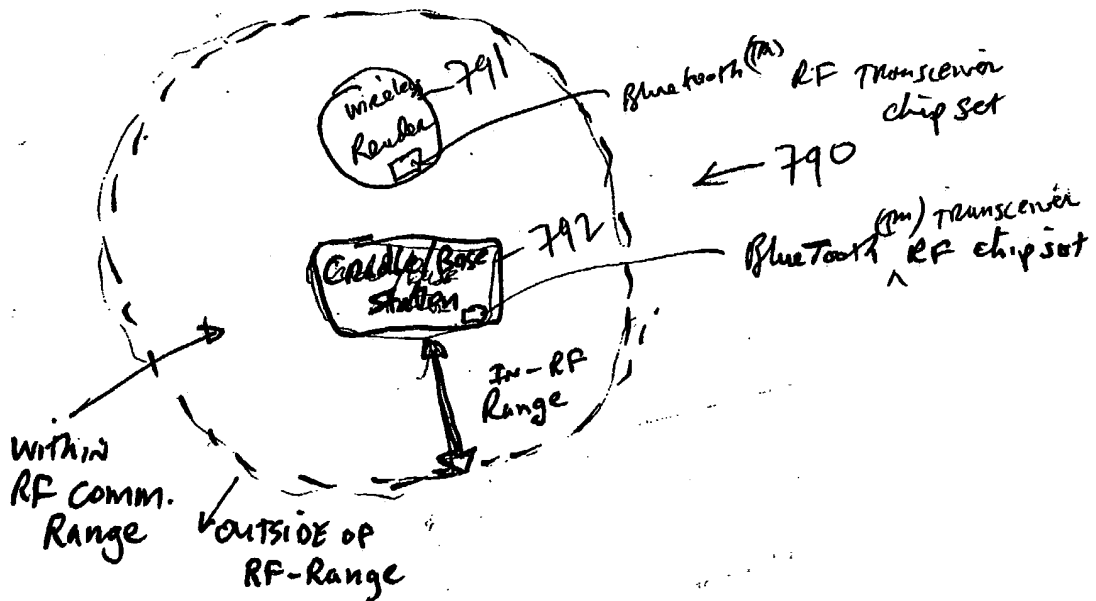 Wireless
Reader
791
Bluetooth (TM) RF Transceiver
chip set
790
Cradle/Base
Station
792
BlueTooth (TM) Transceiver
^ RF chip set
In-RF
Range
Within
RF Comm.
Range
OUTSIDE OF
RF-Range